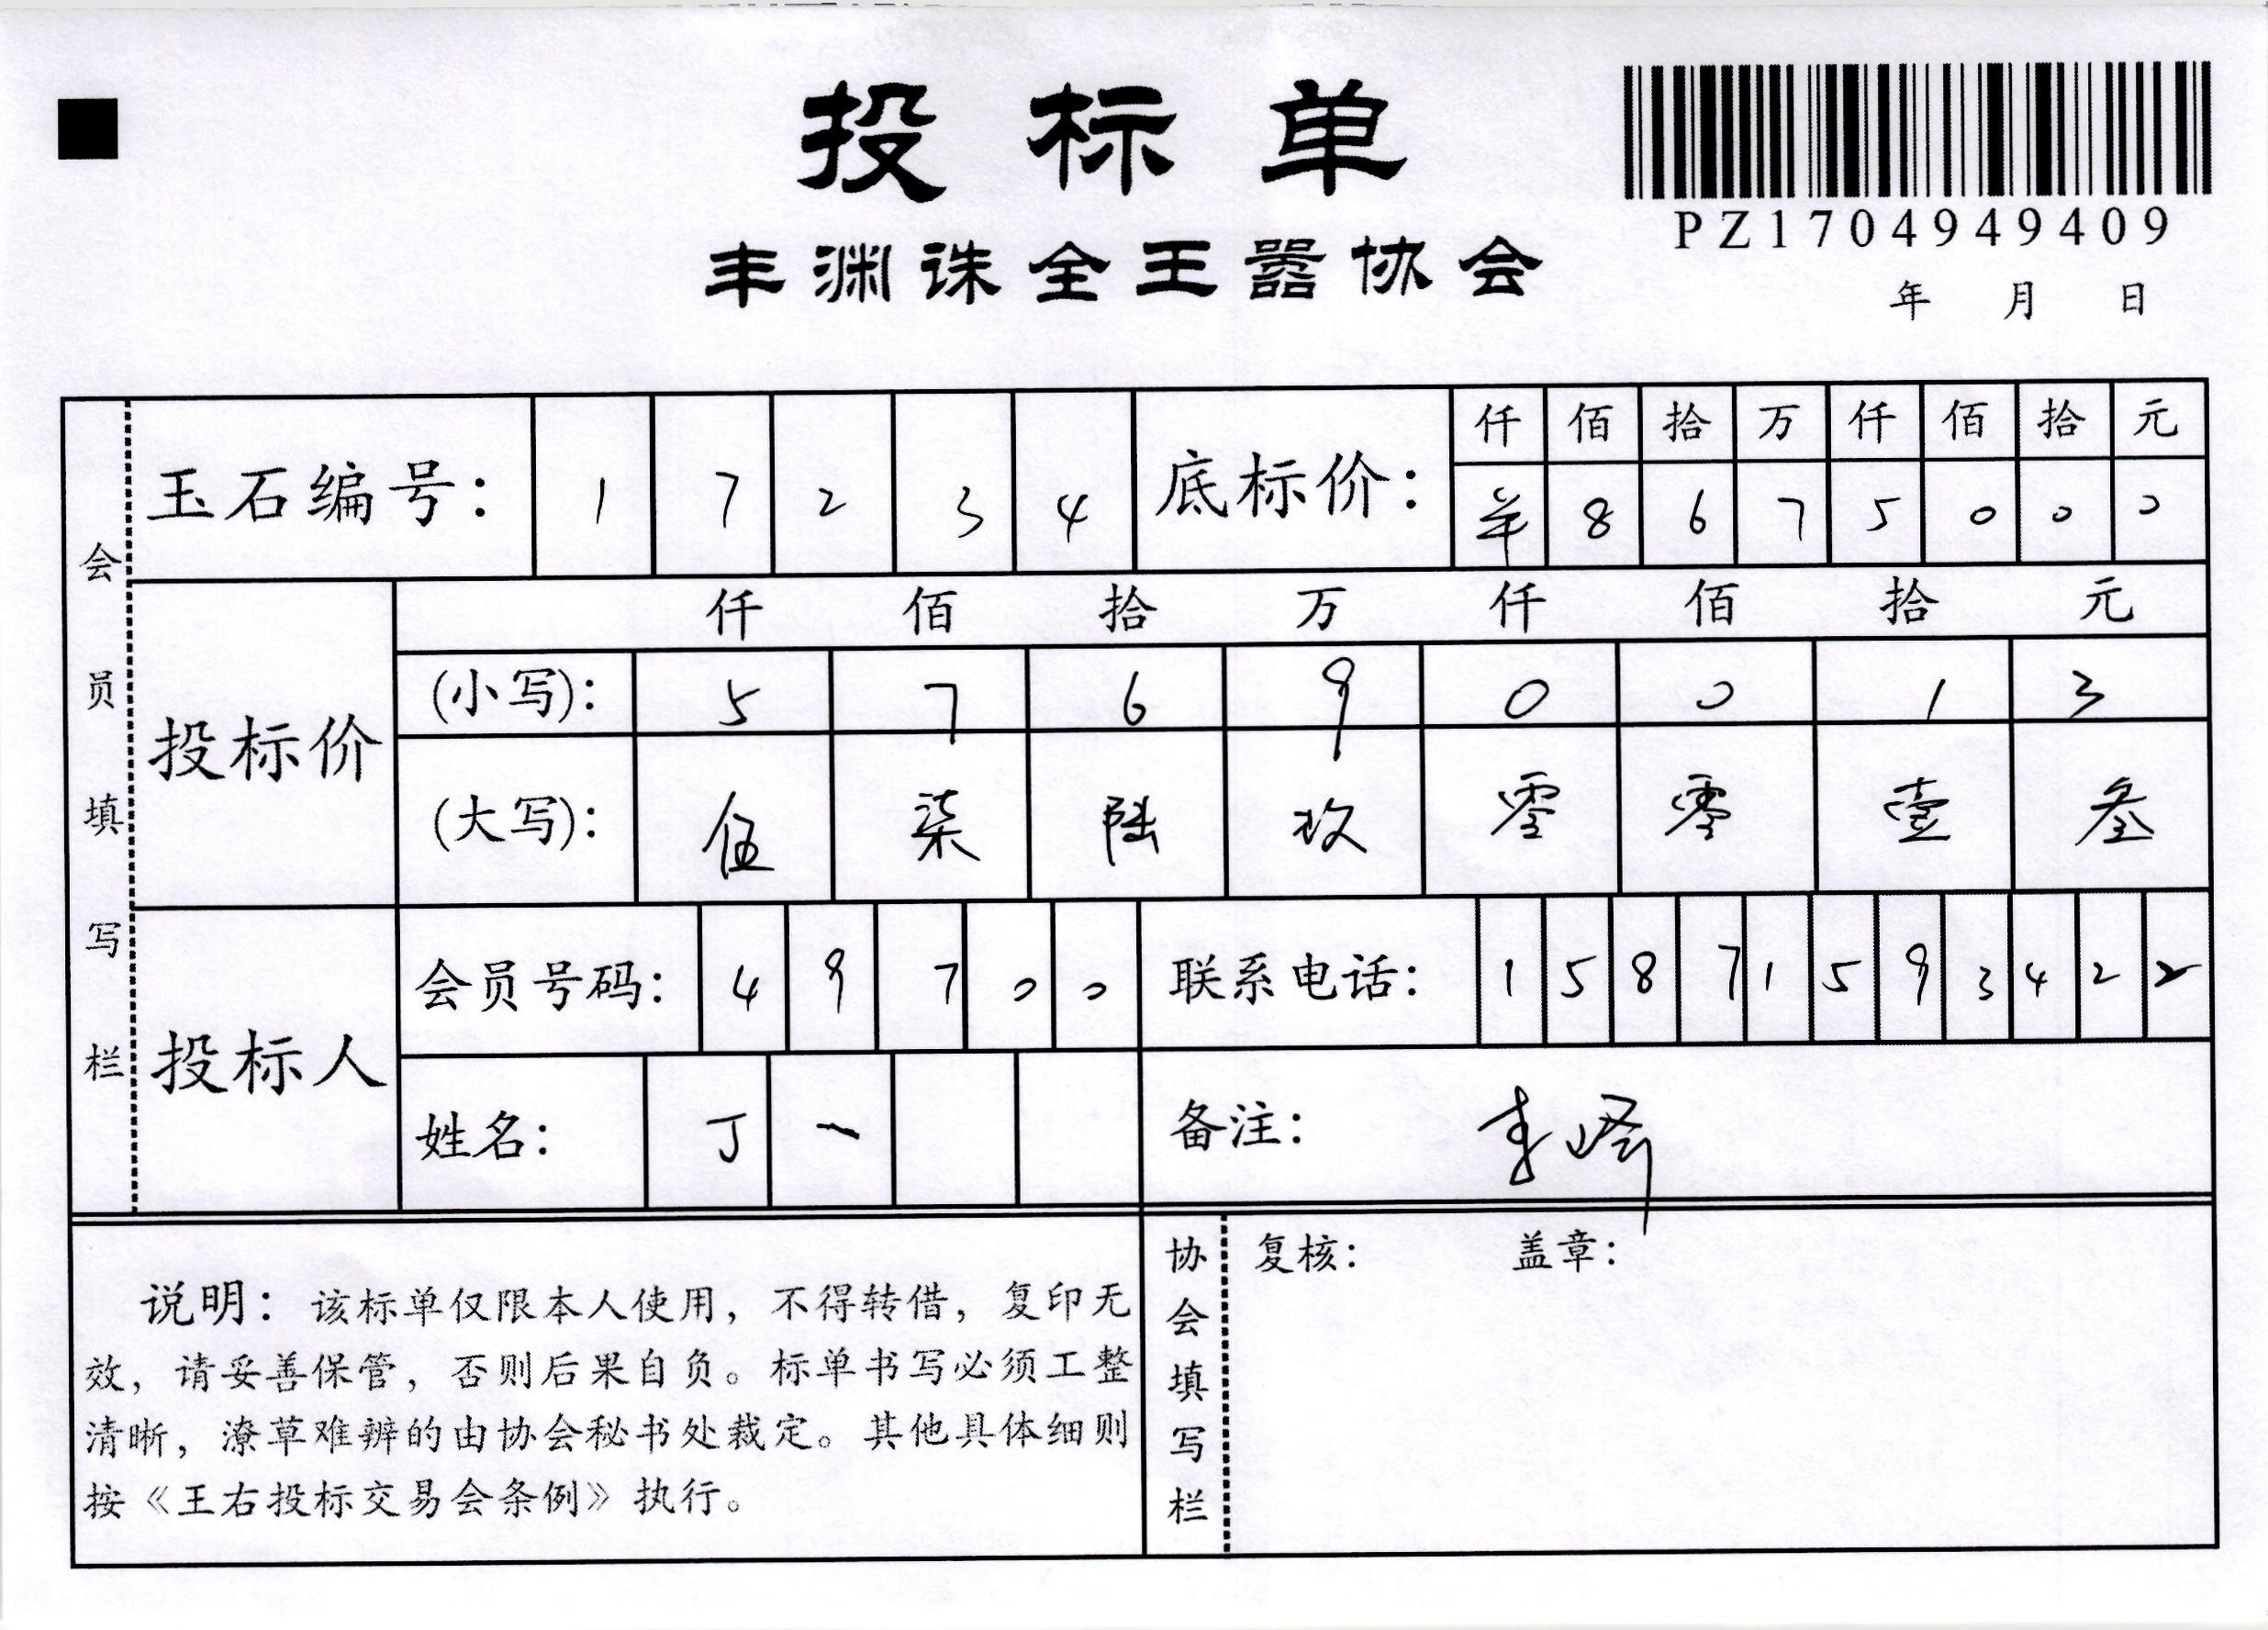 投标单
PZ1704949409
丰渊诛全王嚣协会
年 月 日
会员填写栏
玉石编号： 1 7 2 3 4
底标价： 仟 佰 拾 万 仟 佰 拾 元
8 6 7 5 0 0 0
投标价
仟 佰 拾 万 仟 佰 拾 元
(小写)： 5 7 6 9 0 0 1 3
(大写)： 伍 柒 陆 玖 零 零 壹 叁
投标人
会员号码： 4 9 7 0 0
联系电话： 1 5 8 7 1 5 9 3 4 2 2
姓名： 丁 一
备注：
说明：该标单仅限本人使用，不得转借，复印无
效，请妥善保管，否则后果自负。标单书写必须工整
清晰，潦草难辨的由协会秘书处裁定。其他具体细则
按《王右投标交易会条例》执行。
协会填写栏
复核： 盖章：